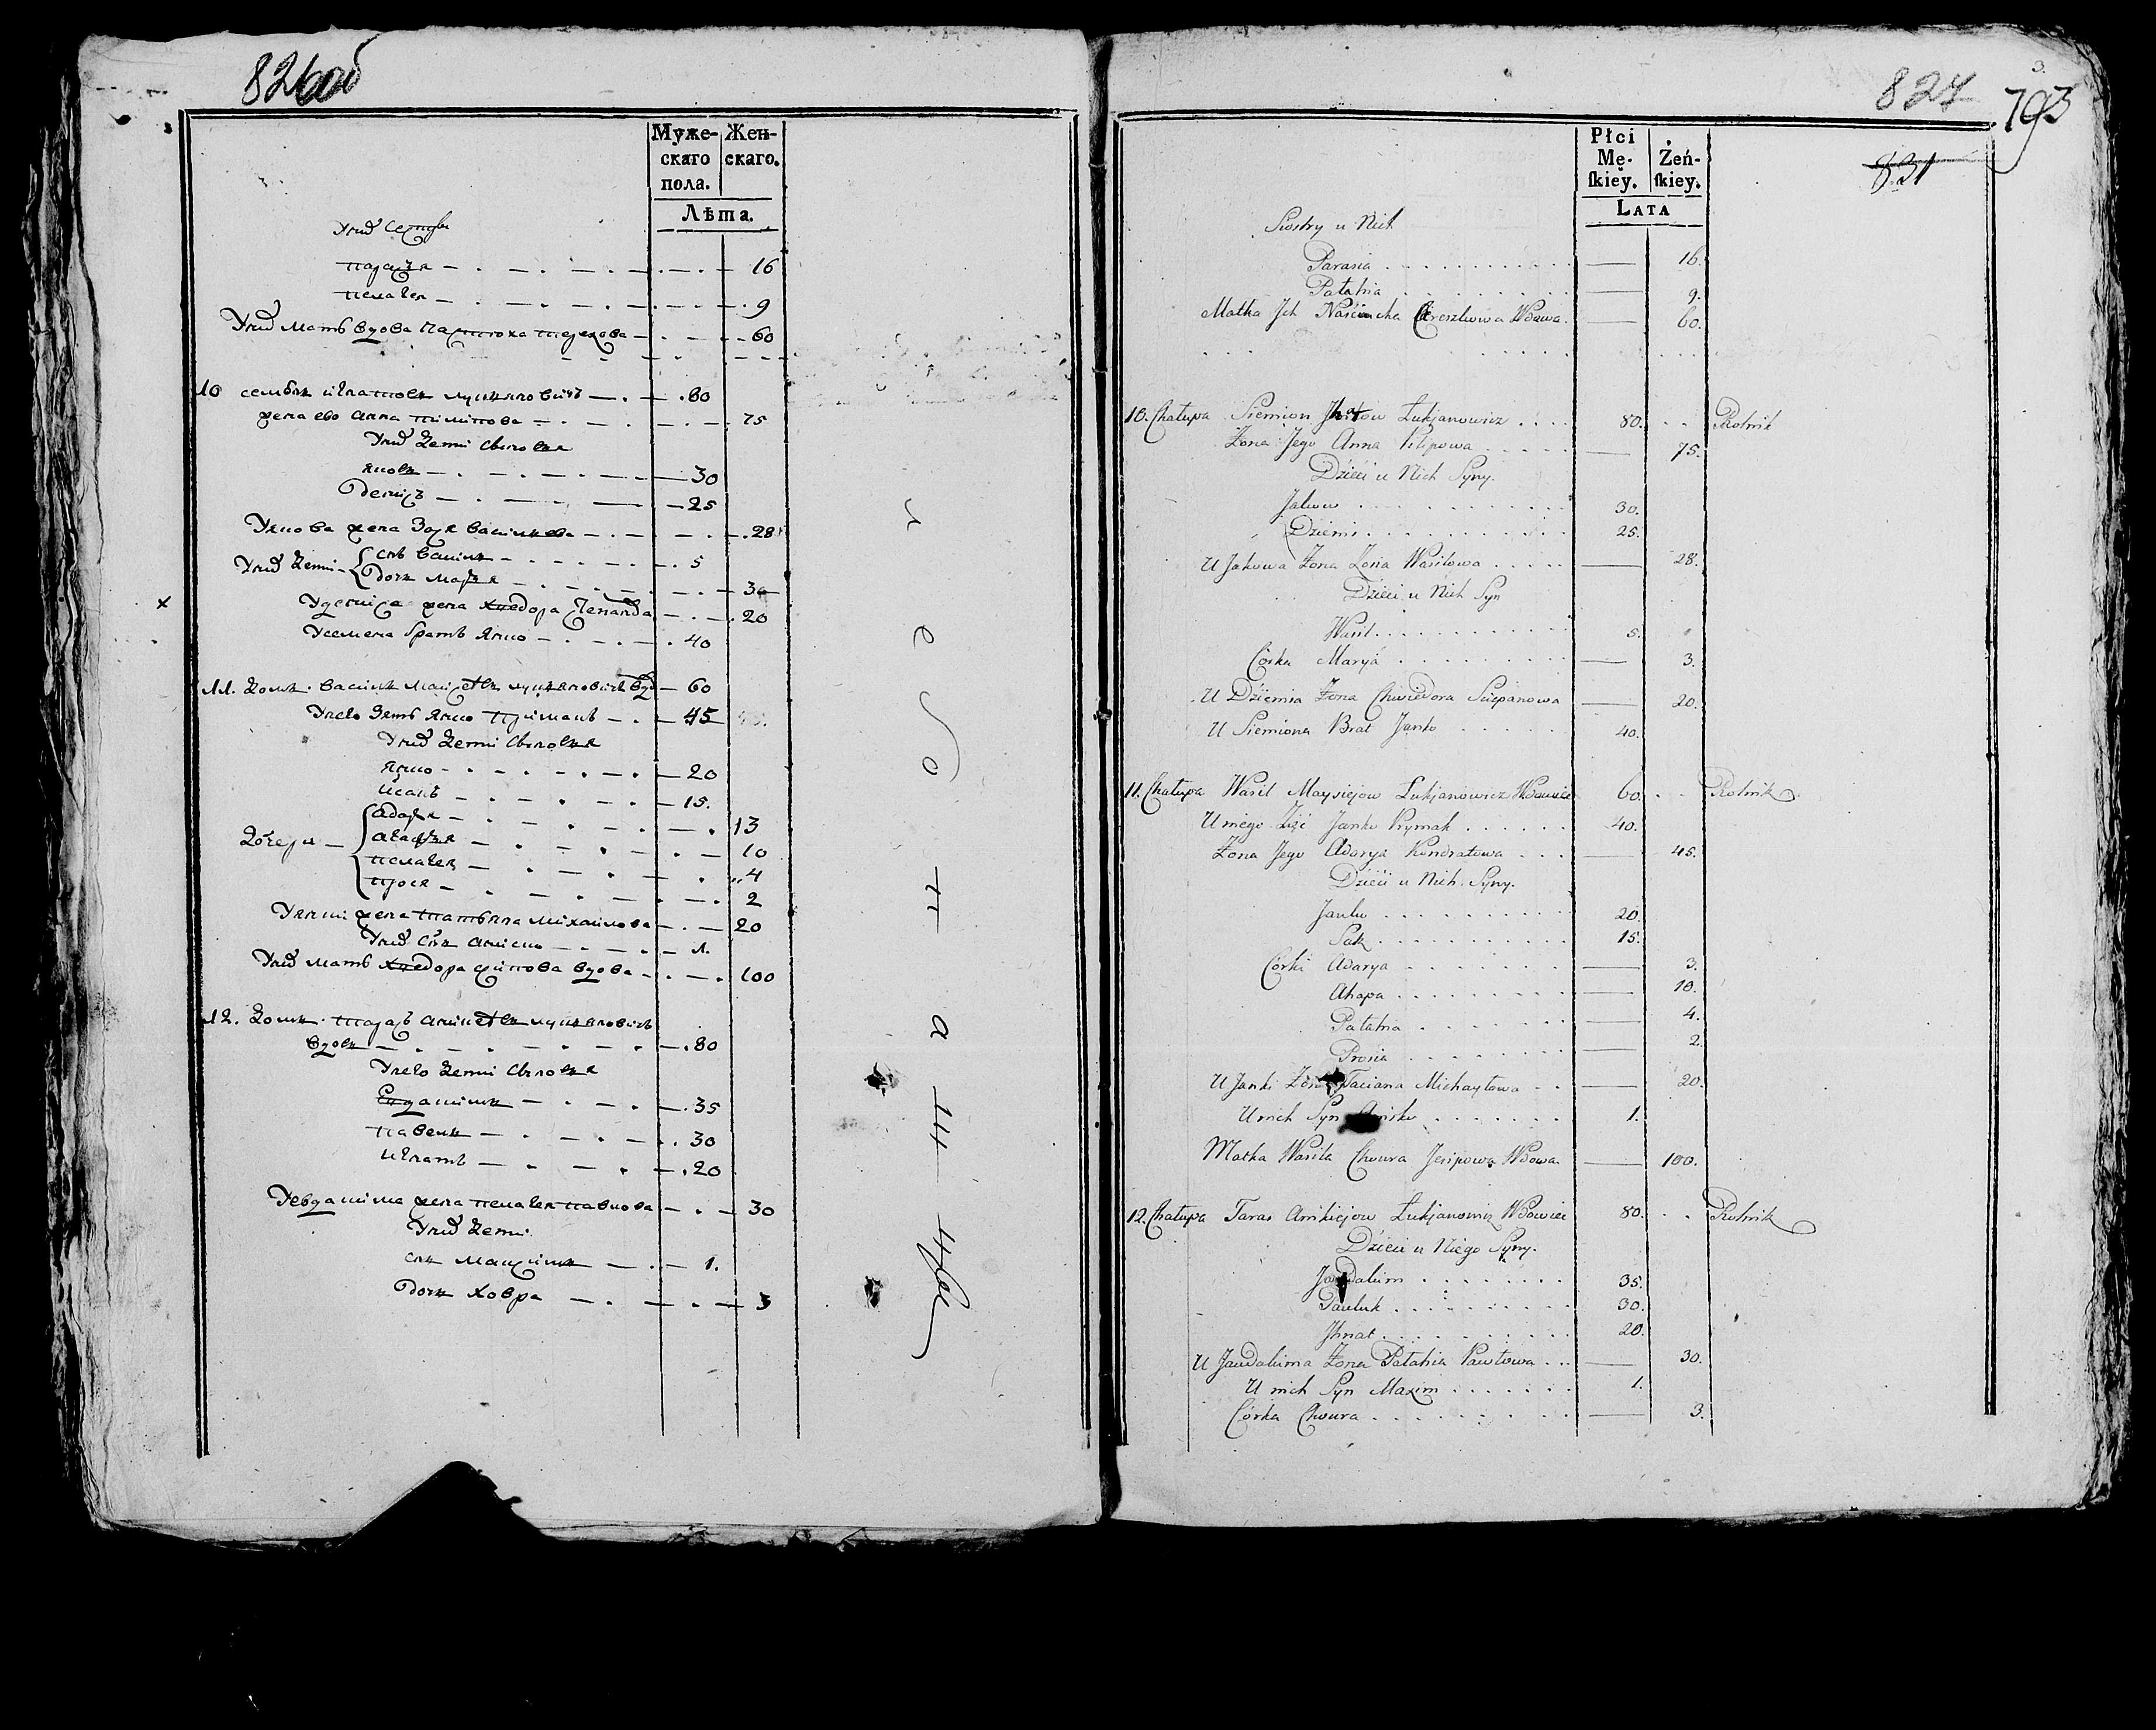 826об
Муже-
скаго
пола.
Жен-
скаго.
Лѣта.
Унихъ сестры
Парася 16
Пелагея 9
Унихъ мать вдова Настюха Терехова 60
10 семенъ игнатовъ лукяновичъ 80
жена ево Анна Пилипова 75
Унихъ дети сыновья
Яковъ 30
Денисъ 25
Уякова жена Зося Василева 28
Унихъ дети
снъ Василъ 5
дочь Марья 3
Удениса жена Хведора Степанова 20
Усемена братъ Янко 40
11. домъ Василъ Маисеевъ лукяновичъ вдо 60
Унего зять Янко Примакъ 45
Унихъ дети сыновья
Янко 20
Исакъ 15.
Дочери
Адарья 13
Агафья 10
Пелагея 4
Прося 2
Уянки жена Татьяна Михайлова 20
Унихъ снъ Аниско 1.
Унихъ мать Хведора Осипова вдова 100
12. домъ Тарасъ Аникеевъ лукяновичъ
вдовъ 80
Унего дети сыновья
Евдакимъ 35
Павелъ 30
Игнатъ 20
Уевдакима жена Пелагея Павлова 30
Унихъ дети
снъ Максимъ 1.
дочь Ховра 3
827
793
831
3.
Płci
Mę-
ſkiey.
Żeń-
ſkiey.
LATA
Siostry u Nich
Parasia 16.
Pałahia 9.
Matka Jch Wdowa. 60.
10. Chałupa Siemion Łukjanowicz 80. Rolnik
Żona Jego Anna Filipowa 75.
Dzieci u Nich Syny.
Jakow 30.
Dziemi 25.
U Jakowa Żona Zosia Wasilowa 28.
Dzieci u Nich Syn
Wasil 5.
Córka Marya 3.
U Dziemia Żona Chwiedora Sciepanowa 20.
U Siemiona Brat Janko 40.
11. Chałupa Wasil Maysiejow Łukjanowicz Wdowiec 60. Rolnik
U niego Zięć Janko Prymak 40.
Żona Jego Adarya Kondratowa 45.
Dzieci u Nich Syny.
Janko 20.
Sak 15.
Córki Adarya 3.
Ahapa 10.
Pałahia 4.
Prosia 2.
U Janki Żona Taciana Michayłowa 20.
U nich Syn 1.
Matka Wasila Chwura Jesipowa Wdowa. 100.
12. Chałupa Taras Anikiejow Łukjanowicz Wdowiec 80. Rolnik
Dzieci u Niego Syny.
Jawdakim 35.
Pauluk 30.
Jhnat 20.
U Jawdakima Żona Pałahia Pawłowa 30.
U nich Syn Maxim 1.
Córka Chwura 3.